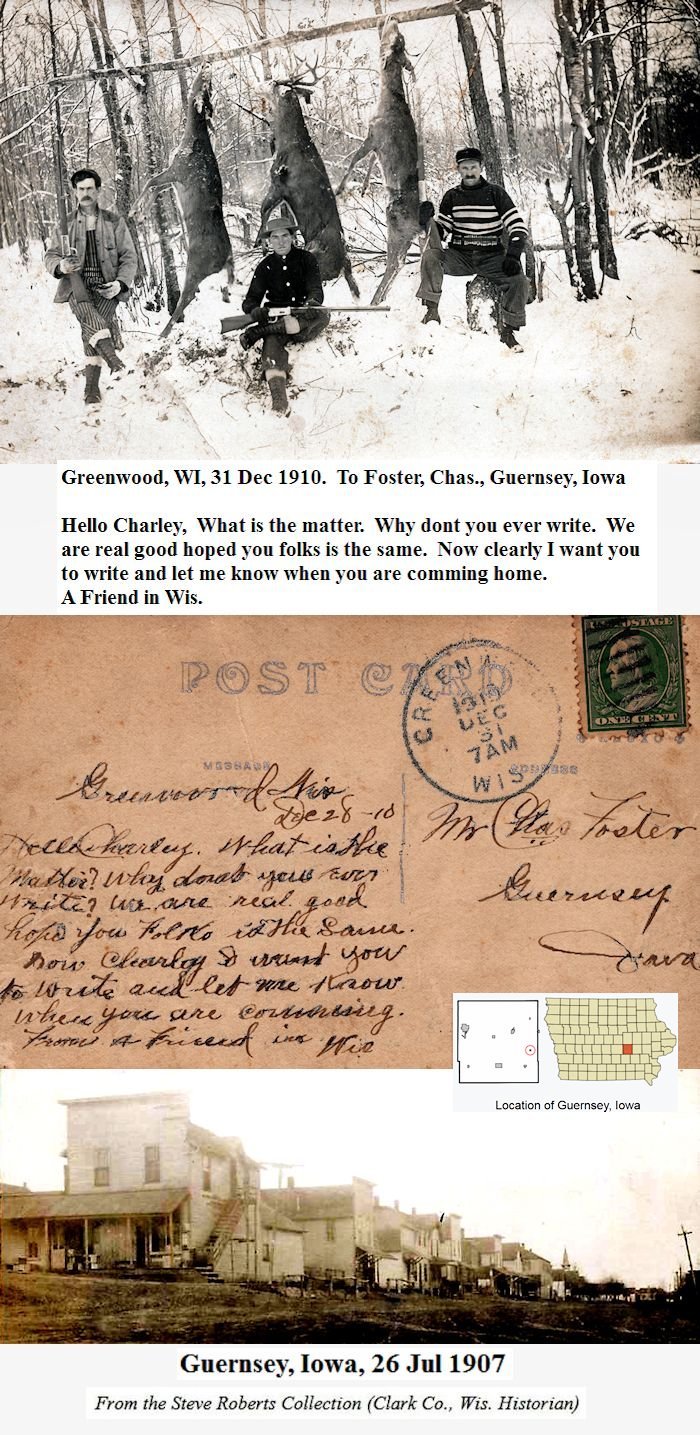 Greenwood, WI, 31 Dec 1910.  To Foster, Chas., Guernsey, Iowa
Hello Charley,  What is the matter.  Why dont you ever write.  We
are real good hoped you folks is the same.  Now clearly I want you
to write and let me know when you are comming home.
A Friend in Wis.
POSTAGE
ONE CENT
POST CARD
GREENW
1910
DEC
31
7AM
WIS
MESSAGE
ADDRESS
Greenwood Wis
Dec 28-10
Hello Charley. What is the
Matter? Why dont you ever
write? We are real good
hope you Folks is the Same.
Now Charley I want you
to write and let me know
when you are comming.
From A Friend in Wis
Mr Chas Foster
Guernsey
Iowa
Location of Guernsey, Iowa
Guernsey, Iowa, 26 Jul 1907
From the Steve Roberts Collection (Clark Co., Wis. Historian)